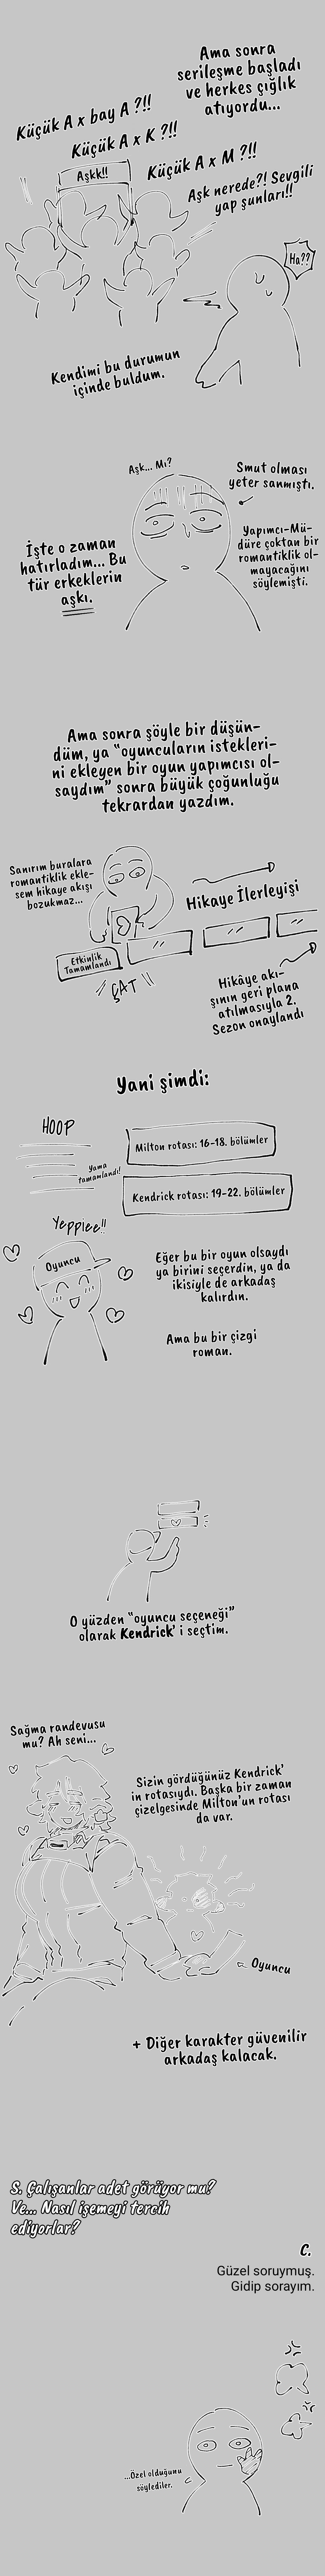 Ama sonra
serileşme başladı
ve herkes çığlık
atıyordu...
Küçük A x bay A ?!!
Küçük A x K ?!!
Küçük A x M ?!!
Aşkk!!
Aşk nerede?! Sevgili
yap şunları!!
Ha??
Kendimi bu durumun
içinde buldum.
Aşk... Mı?
Smut olması
yeter sanmıştı.
İşte o zaman
hatırladım... Bu
tür erkeklerin
aşkı.
Yapımcı-Mü-
düre çoktan bir
romantiklik ol-
mayacağını
söylemişti.
Ama sonra şöyle bir düşün-
düm, ya "oyuncuların istekleri-
ni ekleyen bir oyun yapımcısı ol-
saydım" sonra büyük çoğunluğu
tekrardan yazdım.
Sanırım buralara
romantiklik ekle-
sem hikaye akışı
bozukmaz...
Hikaye İlerleyişi
Etkinlik
Tamamlandı
ÇAT
Hikâye akı-
şının geri plana
atılmasıyla 2.
Sezon onaylandı
Yani şimdi:
HOOP
Yama
tamamlandı!
Milton rotası: 16-18. bölümler
Kendrick rotası: 19-22. bölümler
Yeppiee!!
Oyuncu
Eğer bu bir oyun olsaydı
ya birini seçerdin, ya da
ikisiyle de arkadaş
kalırdın.
Ama bu bir çizgi
roman.
O yüzden "oyuncu seçeneği"
olarak Kendrick' i seçtim.
Sağma randevusu
mu? Ah seni...
Sizin gördüğünüz Kendrick'
in rotasıydı. Başka bir zaman
çizelgesinde Milton'un rotası
da var.
Oyuncu
+ Diğer karakter güvenilir
arkadaş kalacak.
S. Çalışanlar adet görüyor mu?
Ve... Nasıl işemeyi tercih
ediyorlar?
C.
Güzel soruymuş.
Gidip sorayım.
...Özel olduğunu
söylediler.